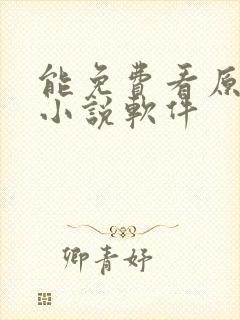 能免費看原
小說軟件
卿青妤